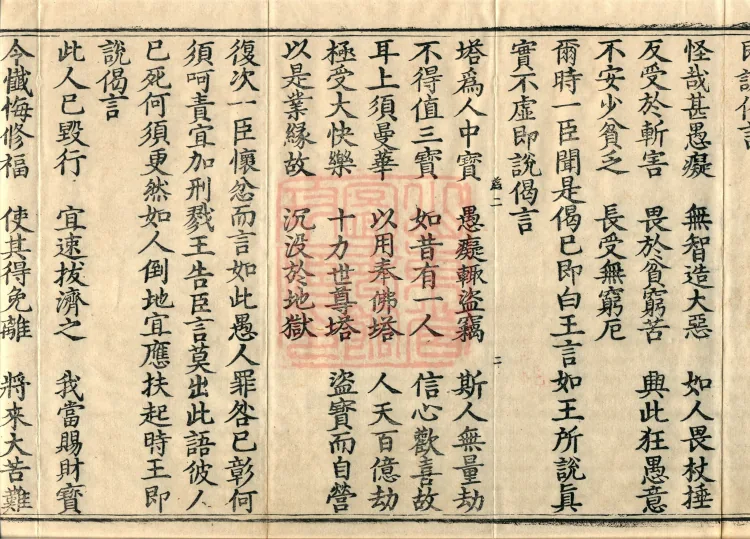 即說偈言
怪哉甚愚癡　無智造大惡　如人畏杖捶
反受於斬害　畏於貧窮苦　興此狂愚意
不安少貧乏　長受無窮厄
爾時一臣聞是偈已即白王言如王所說眞
實不虛即說偈言
塔爲人中寶　愚癡輒盜竊　斯人無量劫
不得值三寶　如昔有一人　信心歡喜故
耳上須曼華　以用奉佛塔　人天百億劫
極受大快樂　十力世尊塔　盜寶而自營
以是業緣故　沉没於地獄
復次一臣懷忿而言如此愚人罪咎已彰何
須呵責宜加刑戮王告臣言莫出此語彼人
已死何須更然如人倒地宜應扶起時王即
說偈言
此人已毀行　宜速拔濟之　我當賜財寶
令懺悔修福　使其得免離　將來大苦難